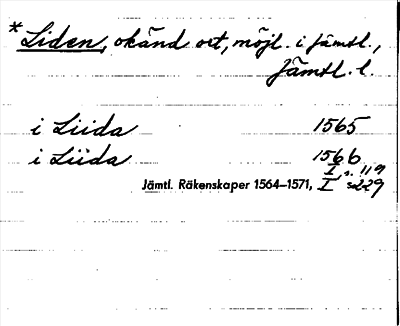 * Liden, okänd ort, möjl. i Jämtl.,
Jämtl. l.
i Liida 1565
i Liida 1566
I, s. 119
Jämtl. Räkenskaper 1564–1571, I s. 229